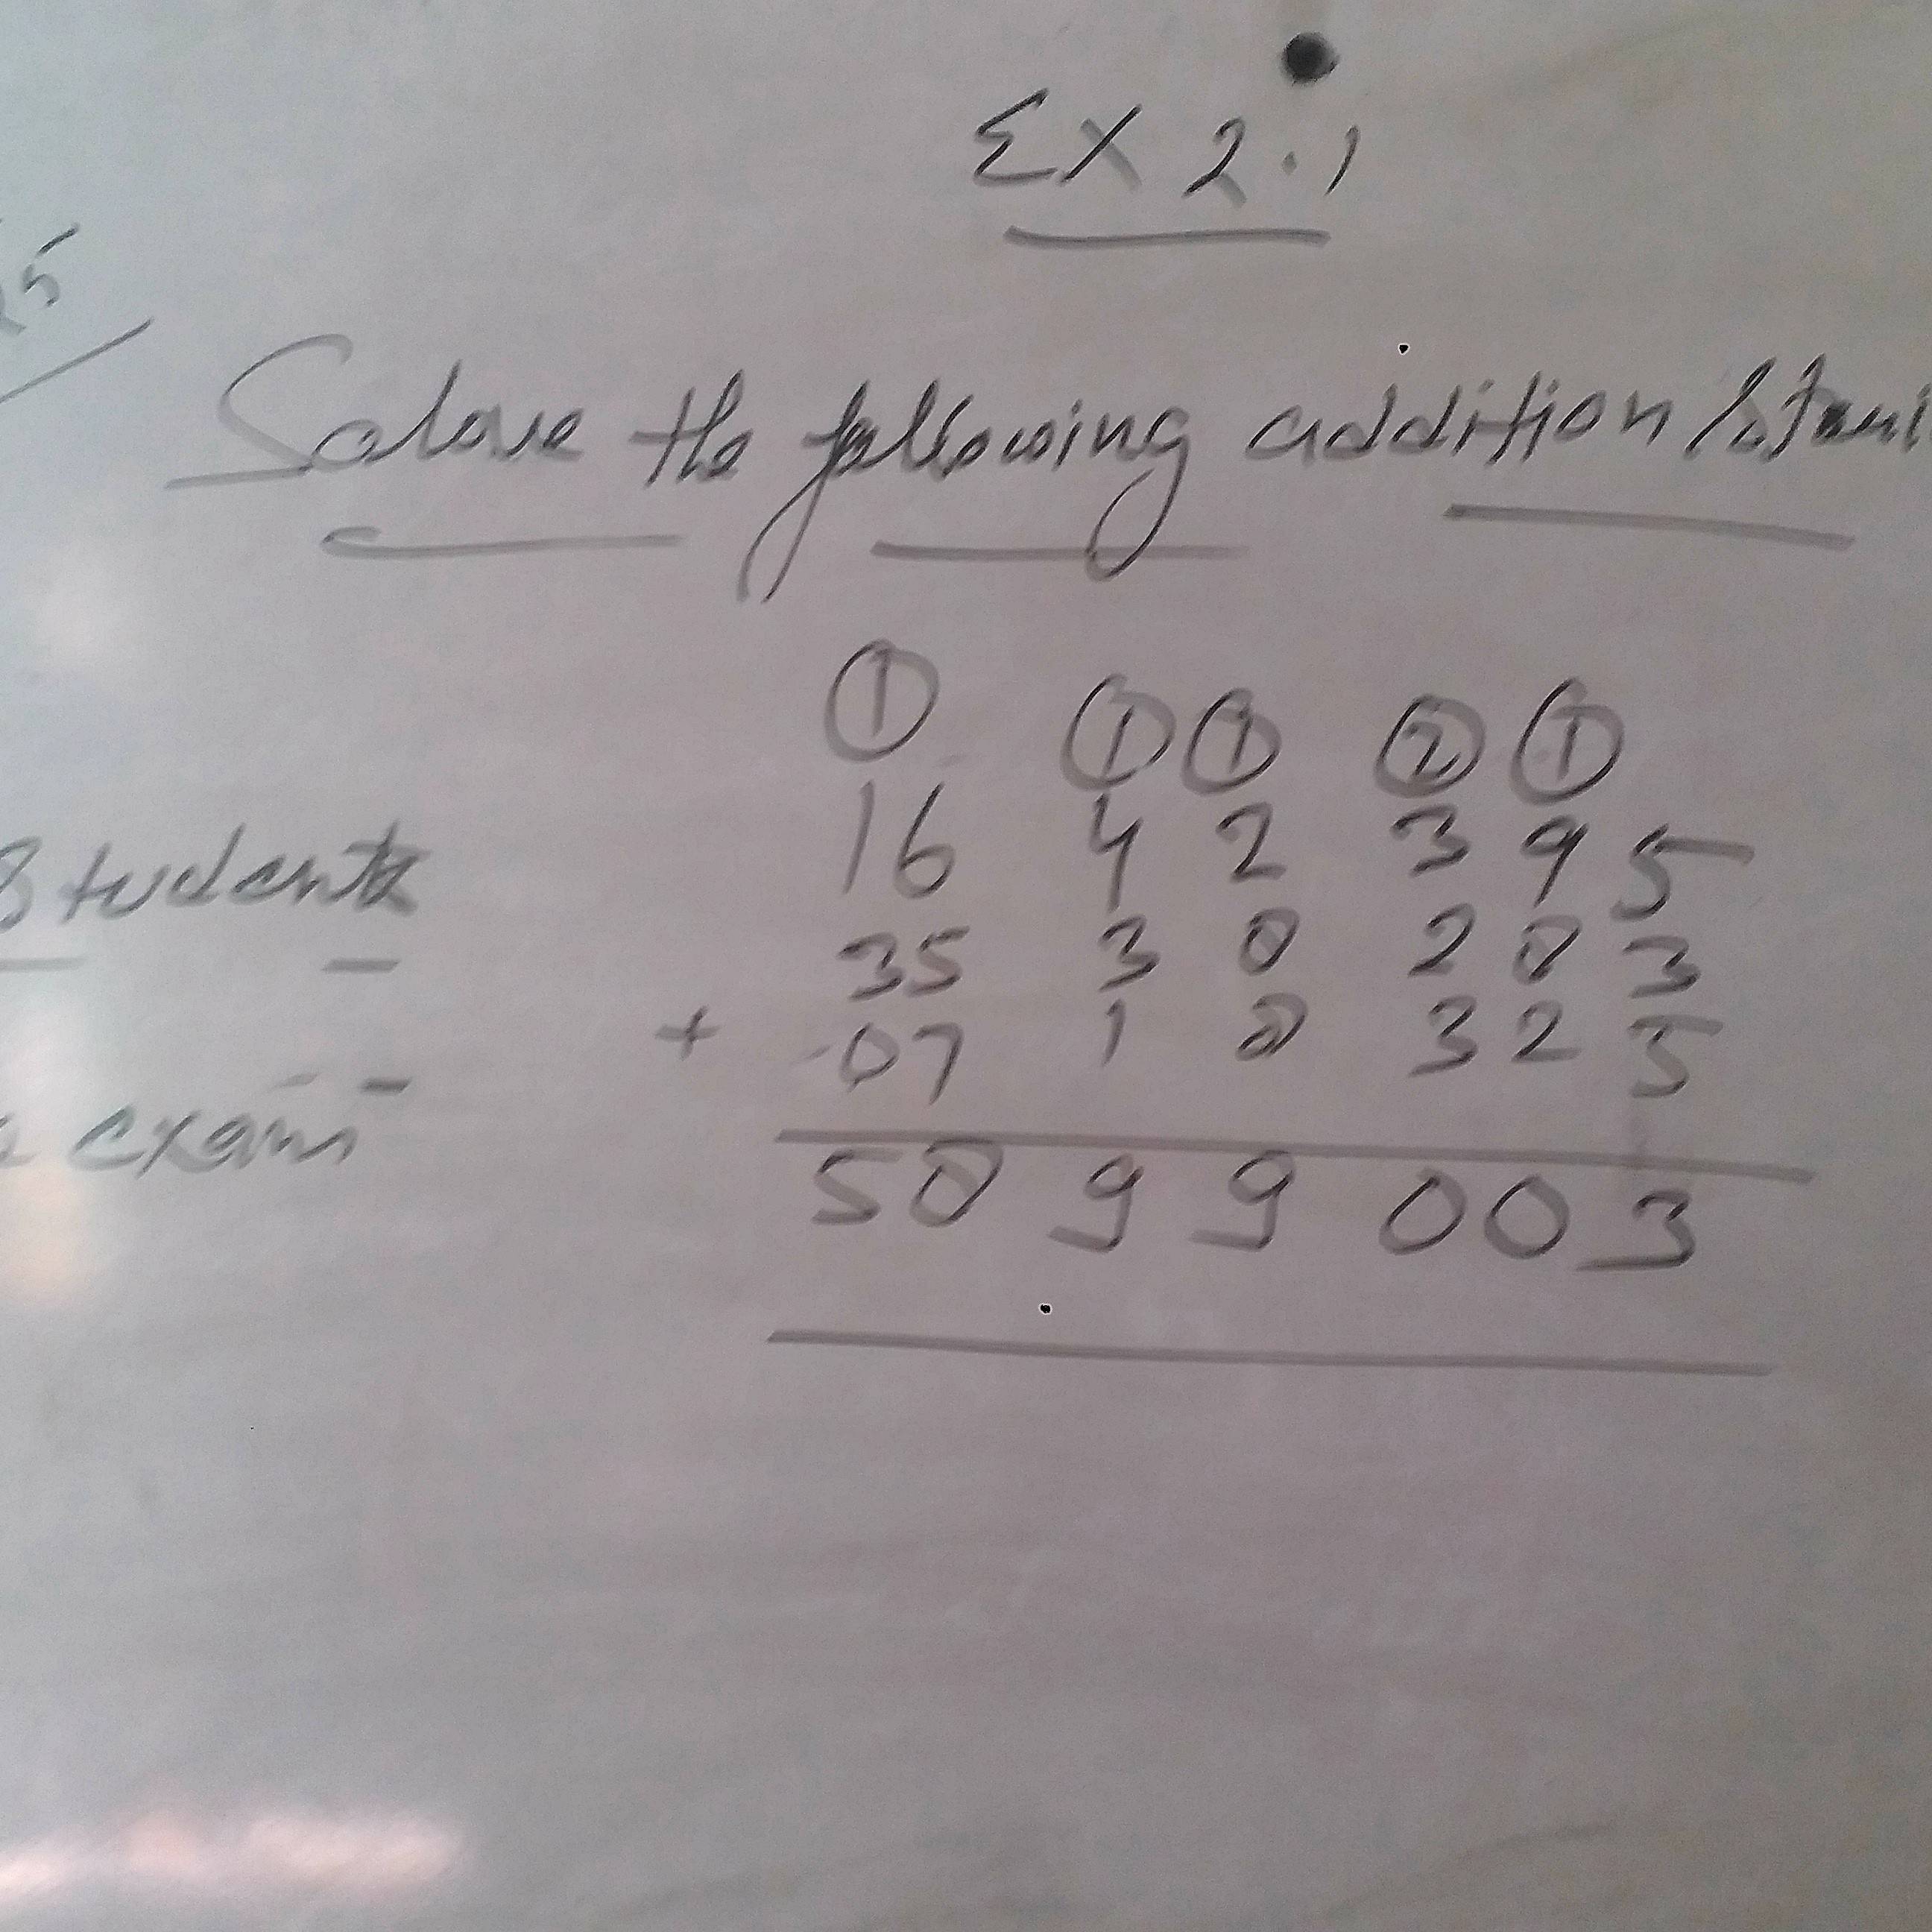 Ex 2.1
25
Solove the following addition
① ① ① ② ①
16 4 2 3 9 5
Students 35 3 0 2 0 3
+ 07 1 0 3 2 5
exam
50 9 9 0 0 3